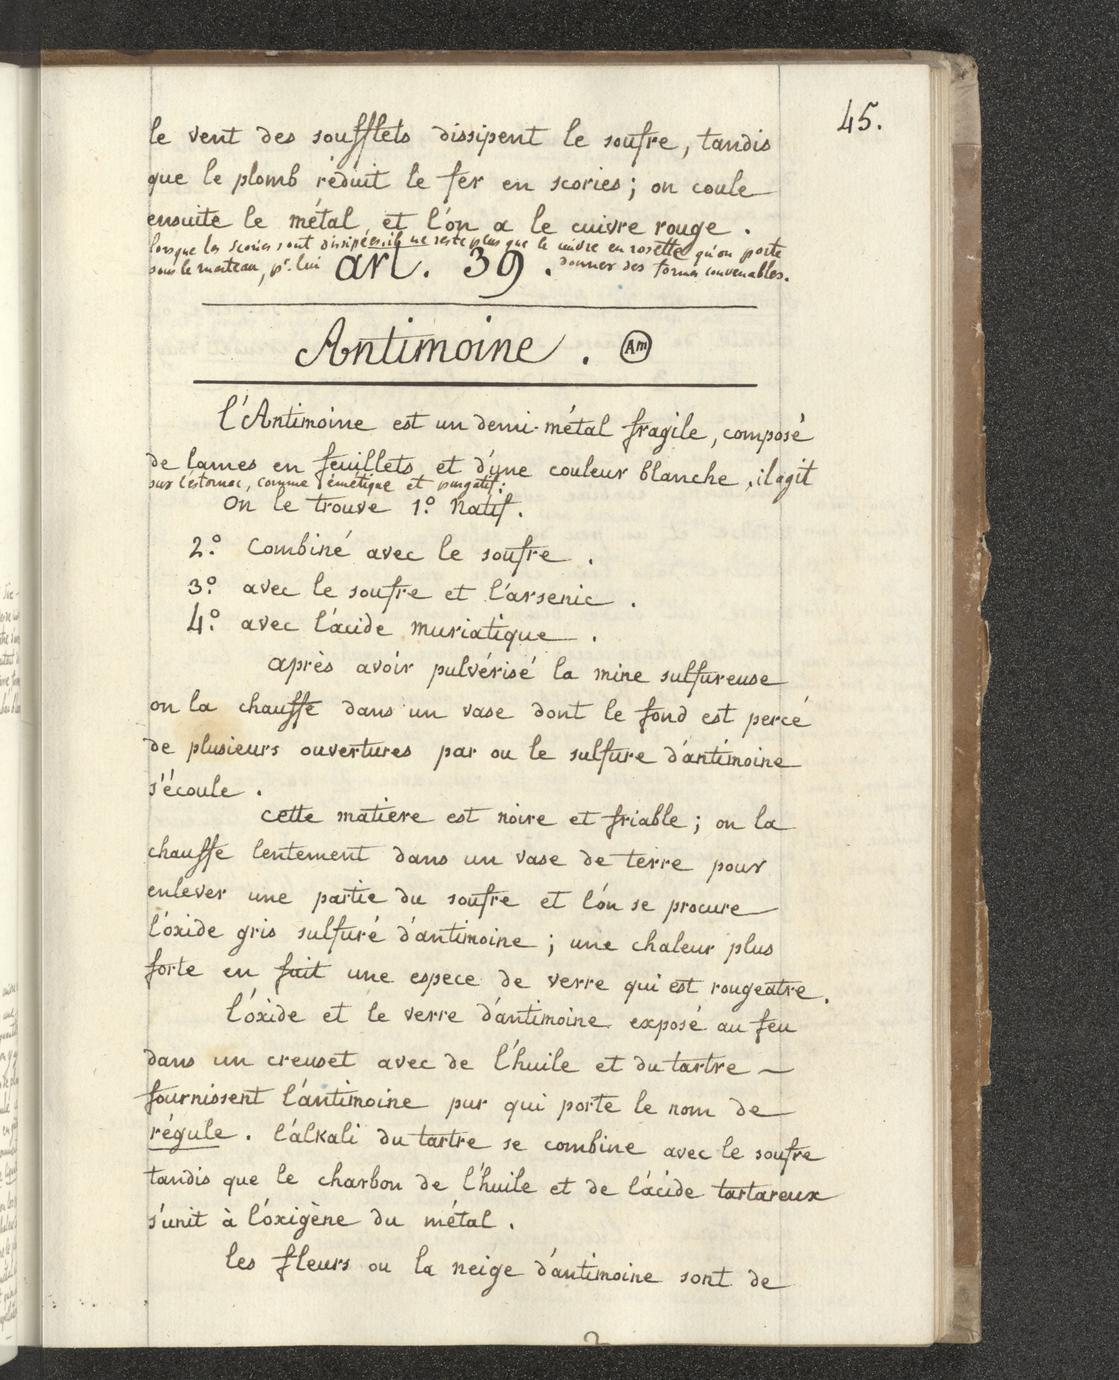 45.
le vent des soufflets dissipent le soufre, tandis
que le plomb réduit le fer en scories ; on coule
ensuite le métal et l'on a le cuivre rouge .
lorsque les scories sont dissipées, il ne reste plus que le cuivre en rosette qu'on porte
sous le marteau, pr. lui donner des formes convenables.
art. 39 .
Antimoine . Am
l'Antimoine est un demi-métal fragile, composé
de lames en feuillets et d'une couleur blanche , il agit
sur l'estomac, comme émétique et purgatif;
On le trouve 1.º natif .
2.º Combiné avec le soufre .
3.º avec le soufre et l'arsenic .
4.º avec l'acide muriatique .
après avoir pulvérisé la mine sulfureuse
on la chauffe dans un vase dont le fond est percé
de plusieurs ouvertures par ou le sulfure d'antimoine
s'écoule .
cette matière est noire et friable ; on la
chauffe lentement dans un vase de terre pour
enlever une partie du soufre et l'on se procure
l'oxide gris sulfuré d'antimoine ; une chaleur plus
forte en fait une espece de verre qui est rougeatre .
l'oxide et le verre d'antimoine exposé au feu
dans un creuset avec de l'huile et du tartre —
fournissent l'antimoine pur qui porte le nom de
régule . l'alkali du tartre se combine avec le soufre
tandis que le charbon de l'huile et de l'acide tartareux
s'unit à l'oxigène du métal .
les fleurs ou la neige d'antimoine sont de